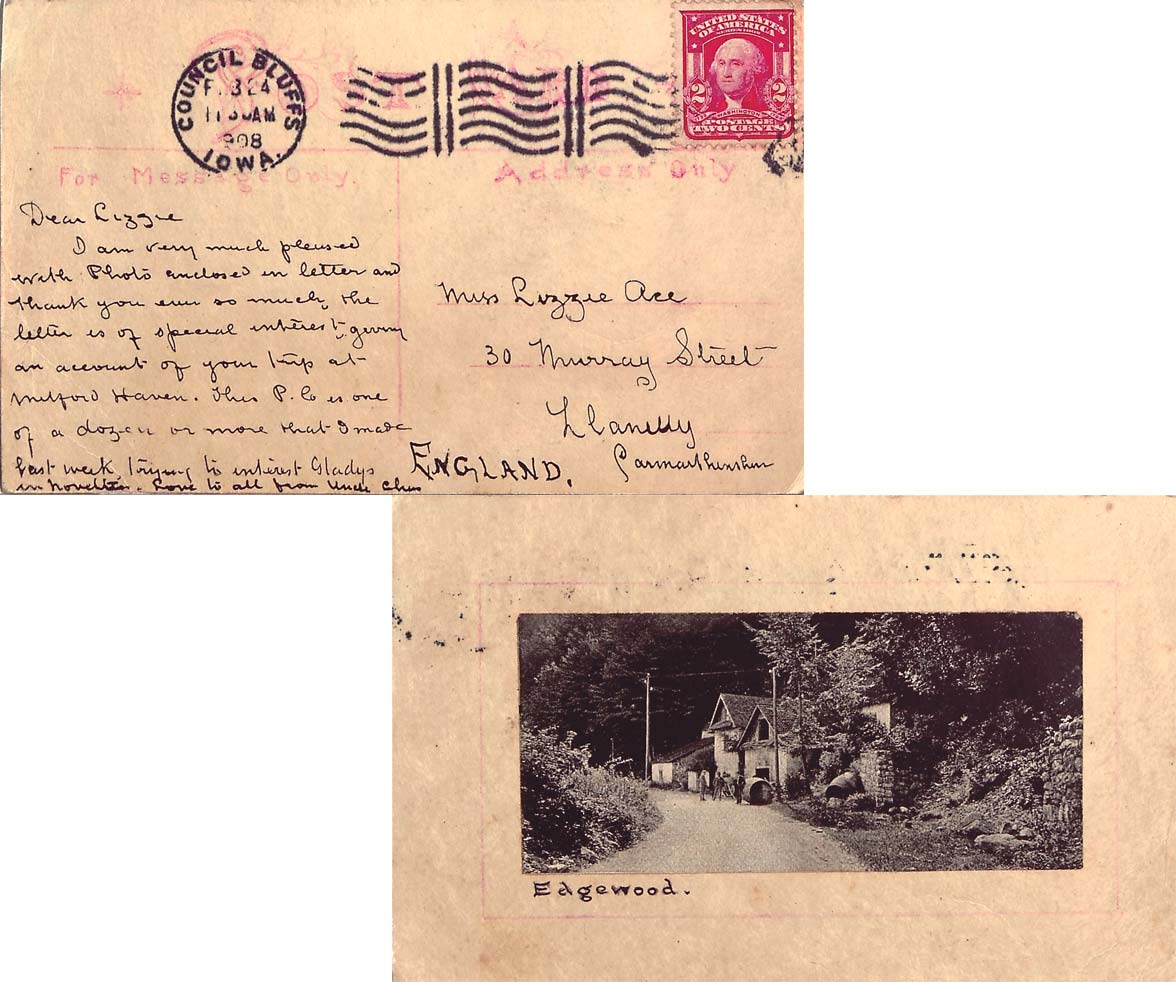 COUNCIL BLUFFS
FEB 24
11 30 AM
1908
IOWA.
UNITED STATES
OF AMERICA
2 2
WASHINGTON
POSTAGE
TWO CENTS
For Message Only.
Address Only.
Dear Lizzie
I am very much pleased
with Photo enclosed in letter and
thank you ever so much, the
letter is of special interest, giving
an account of your trip at
Milford Haven. This P.C. is one
of a dozen or more that I made
last week, trying to interest Gladys
in novelties. Love to all from Uncle Chas
Miss Lizzie Ace
30 Murray Street
Llanelly
Carmarthenshire
ENGLAND.
Edgewood.